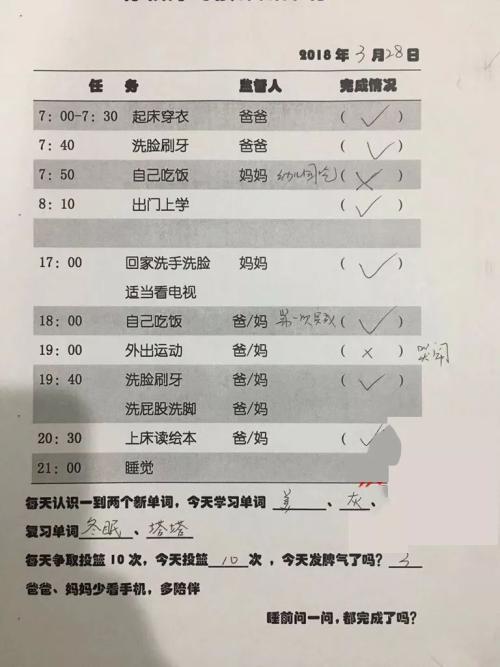 2018 年 3 月 28 日
任 务 监督人 完成情况
7:00-7:30 起床穿衣 爸爸 ( ✓ )
7:40 洗脸刷牙 爸爸 ( ✓ )
7:50 自己吃饭 妈妈 幼儿园吃 ( × )
8:10 出门上学 ( ✓ )
17:00 回家洗手洗脸 妈妈 ( ✓ )
适当看电视
18:00 自己吃饭 爸/妈 第一次 ( ✓ )
19:00 外出运动 爸/妈 ( × )
19:40 洗脸刷牙 爸/妈 ( ✓ )
洗屁股洗脚 爸/妈
20:30 上床读绘本 爸/妈 ( ✓
21:00 睡觉
每天认识一到两个新单词，今天学习单词 、灰、
复习单词冬眠、塔塔
每天争取投篮 10 次，今天投篮 10 次 ，今天发脾气了吗？
爸爸、妈妈少看手机，多陪伴
睡前问一问，都完成了吗？